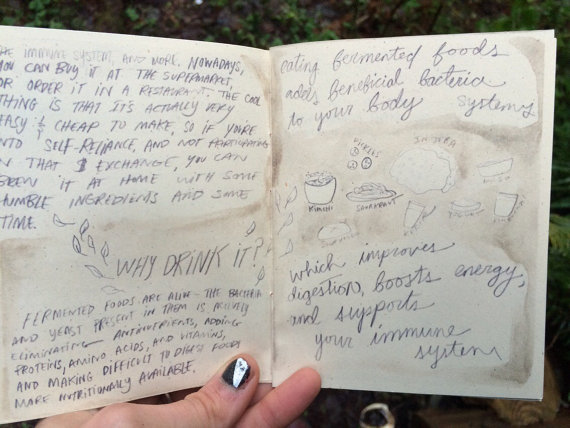 THE IMMUNE SYSTEM, AND MORE. NOWADAYS,
YOU CAN BUY IT AT THE SUPERMARKET,
OR ORDER IT IN A RESTAURANT, THE COOL
THING IS THAT IT'S ACTUALLY VERY
EASY & CHEAP TO MAKE, SO IF YOU'RE
INTO SELF-RELIANCE, AND NOT PARTICIPATING
IN THAT $ EXCHANGE, YOU CAN
BREW IT AT HOME WITH SOME
HUMBLE INGREDIENTS AND SOME
TIME.
WHY DRINK IT?
FERMENTED FOODS ARE ALIVE - THE BACTERIA
AND YEAST PRESENT IN THEM IS ACTIVELY
ELIMINATING ANTINUTRIENTS, ADDING
PROTEINS, AMINO ACIDS, AND VITAMINS,
AND MAKING DIFFICULT TO DIGEST FOODS
MORE NUTRITIONALLY AVAILABLE.
eating fermented foods
adds beneficial bacteria
to your body systems
PICKLES
INJERA
KIMCHI
SAURKRAUT
which improves
digestion, boosts energy,
and supports
your immune
system